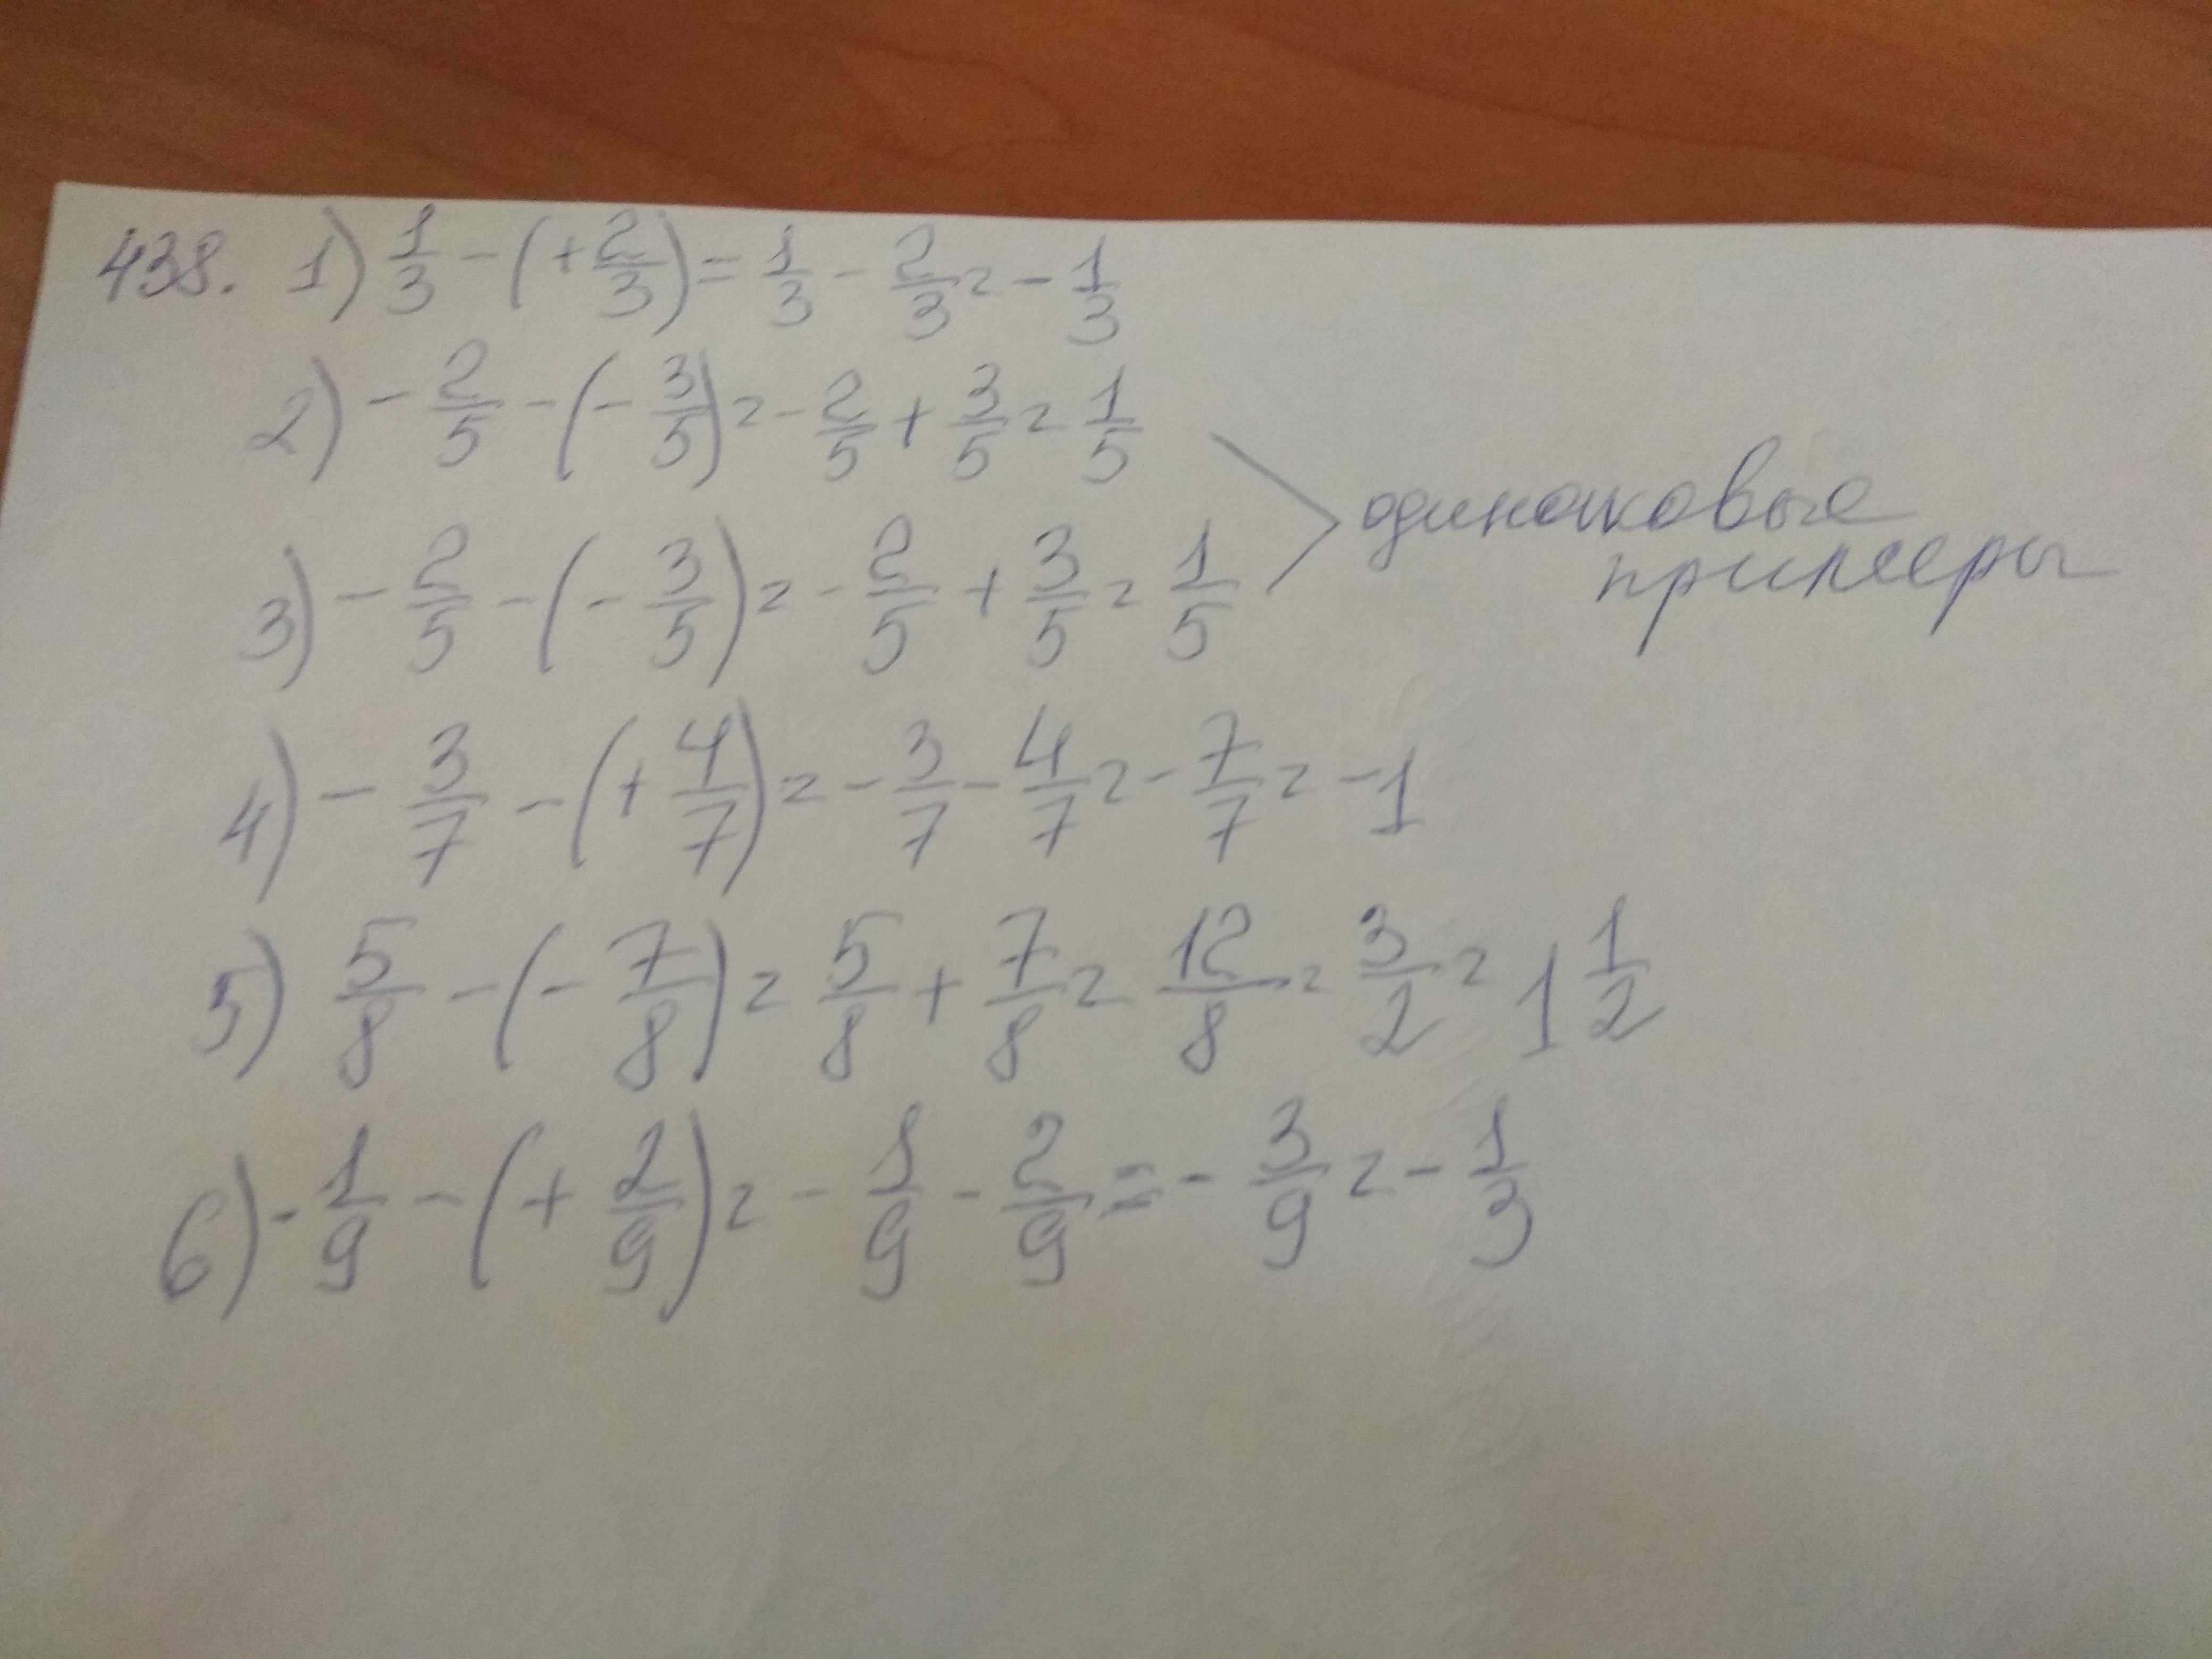 438. 1) 1/3 - (+ 2/3) = 1/3 - 2/3 = - 1/3
2) - 2/5 - (- 3/5) = - 2/5 + 3/5 = 1/5
3) - 2/5 - (- 3/5) = - 2/5 + 3/5 = 1/5
одинаковые
примеры
4) - 3/7 - (+ 4/7) = - 3/7 - 4/7 = - 7/7 = -1
5) 5/8 - (- 7/8) = 5/8 + 7/8 = 12/8 = 3/2 = 1 1/2
6) - 1/9 - (+ 2/9) = - 1/9 - 2/9 = - 3/9 = - 1/3